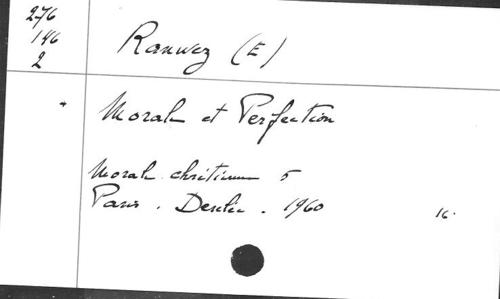 276
146
2
Ranwez (E)
* Morale et Perfection
Morale chrétienne 5
Paris . Desclée . 1960
16.